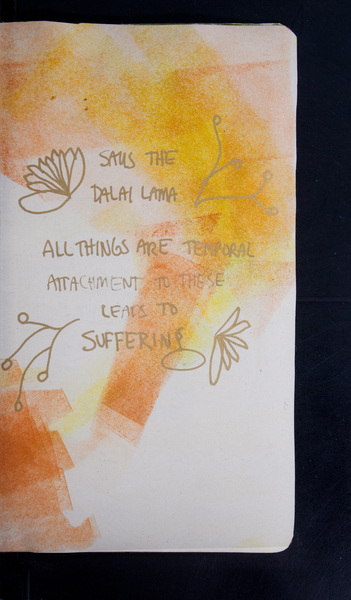 SAYS THE
DALAI LAMA
ALL THINGS ARE TEMPORAL
ATTACHMENT TO THESE
LEADS TO
SUFFERING